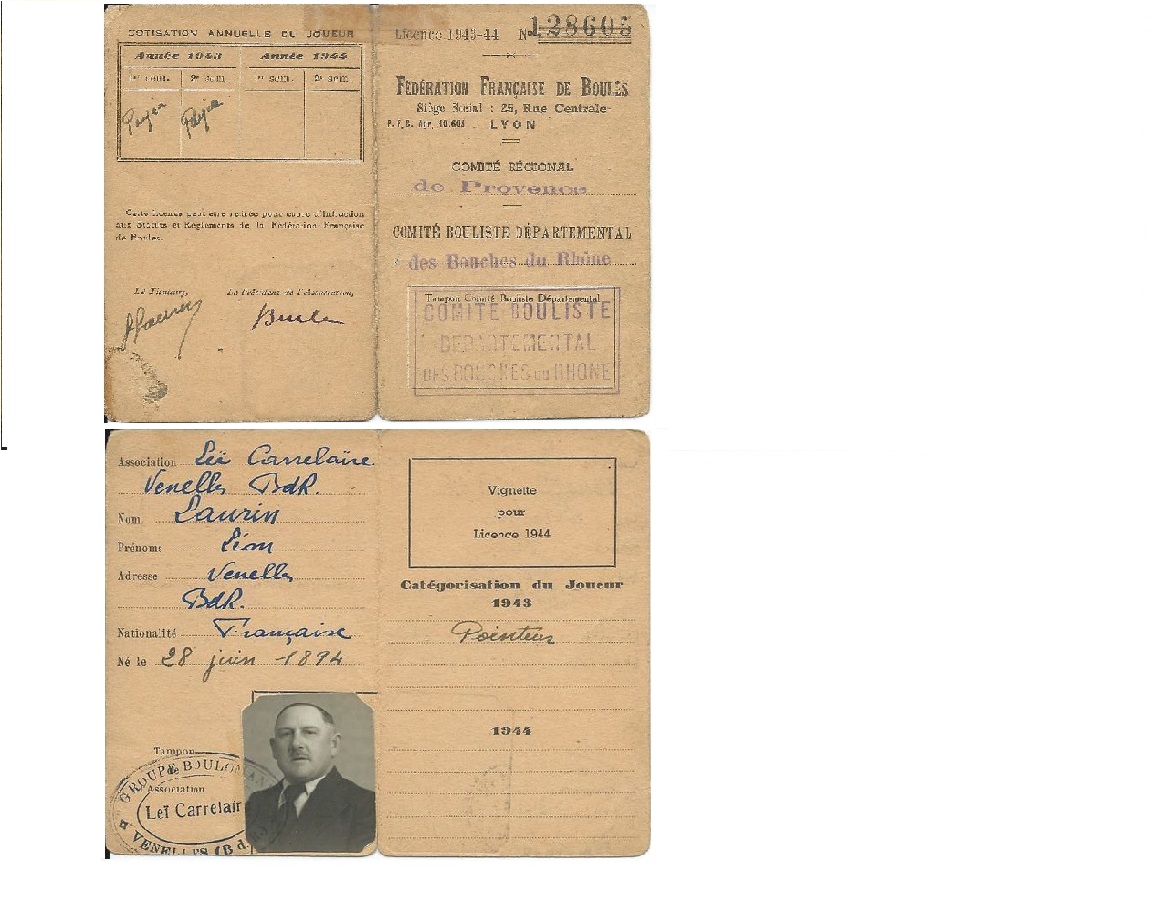 COTISATION ANNUELLE DU JOUEUR
Année 1943 Année 1944
1er sem. 2e sem 1er sem. 2e sem
Cette licence peut être retirée pour cause d'infraction
aux Statuts et Règlements de la Fédération Française
de Boules.
Le Titulaire, Le Président de l'Association,
Licence 1943-44 No 128605
FÉDÉRATION FRANÇAISE DE BOULES
Siège Social : 25, Rue Centrale
LYON
COMITÉ RÉGIONAL
de Provence
COMITÉ BOULISTE DÉPARTEMENTAL
des Bouches du Rhône
Tampon Comité Bouliste Départemental
COMITE BOULISTE
DEPARTEMENTAL
DES BOUCHES DU RHONE
Association Leï Carrelaire
Venelles BdR.
Nom Laurin
Prénoms
Adresse Venelles
BdR.
Nationalité Française
Né le 28 juin 1894
Tampon
de
Association
GROUPE BOULO
Leï Carrelair
VENELLES (B d
Vignette
pour
Licence 1944
Catégorisation du Joueur
1943
Pointeur
1944